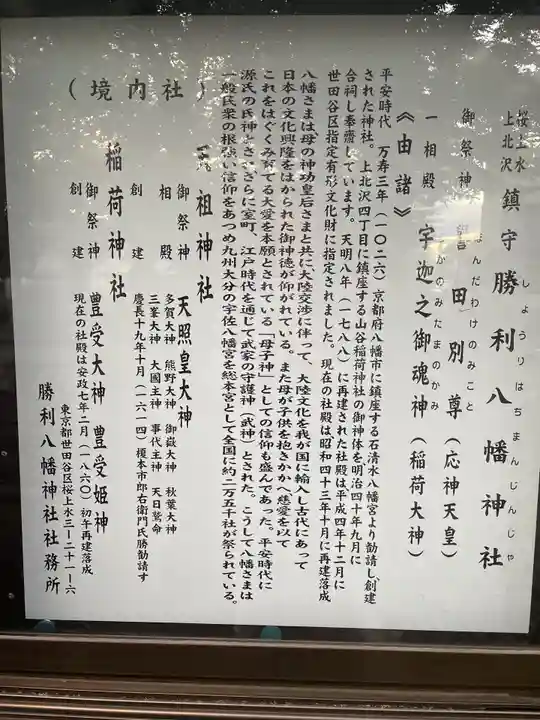 桜上水
上北沢
鎮守 勝利八幡神社
しょうりはちまんじんじゃ
御祭神 田別尊（応神天皇）
んだわけのみこと
一相殿 宇迦之御魂神（稲荷大神）
がのみたまのかみ
《由緒》
平安時代 万寿三年（一〇二六）京都府八幡市に鎮座する石清水八幡宮より勧請し創建
された神社。上北沢四丁目に鎮座する山谷稲荷神社の御神体を明治四十年九月に
合祠し奉齋しています。天明八年（一七八八）に再建された社殿は平成四年十二月に
世田谷区指定有形文化財に指定されました。現在の社殿は昭和四十三年十月に再建落成
八幡さまは母の神功皇后さまと共に、大陸交渉に伴って、大陸文化を我が国に輸入し古代にあって
日本の文化興隆をはかられた御神徳が仰がれている。また母が子供を抱きかかへ慈愛を以て
これをはぐくみ育てる大愛を本願とされている「母子神」としての信仰も盛んであった。平安時代に
源氏の氏神とさ、さらに室町、江戸時代を通じて武家の守護神（武神）とされた。こうして八幡さまは
一般民衆の根強い信仰をあつめ九州大分の宇佐八幡宮を総本宮として全国に約二万五千社が祭られている。
（境内社）
祖神社
御祭神 天照皇大神
相殿 多賀大神 熊野大神 御嶽大神 秋葉大神
三峯大神 大國主神 事代主神 天日鷲命
創建 慶長十九年十月（一六一四）榎本市郎右衛門氏勝勧請す
稲荷神社
御祭神 豊受大神 豊受姫神
創建 現在の社殿は安政七年二月（一八六〇）初午再建落成
東京都世田谷区桜上水三ー二十一ー六
勝利八幡神社社務所